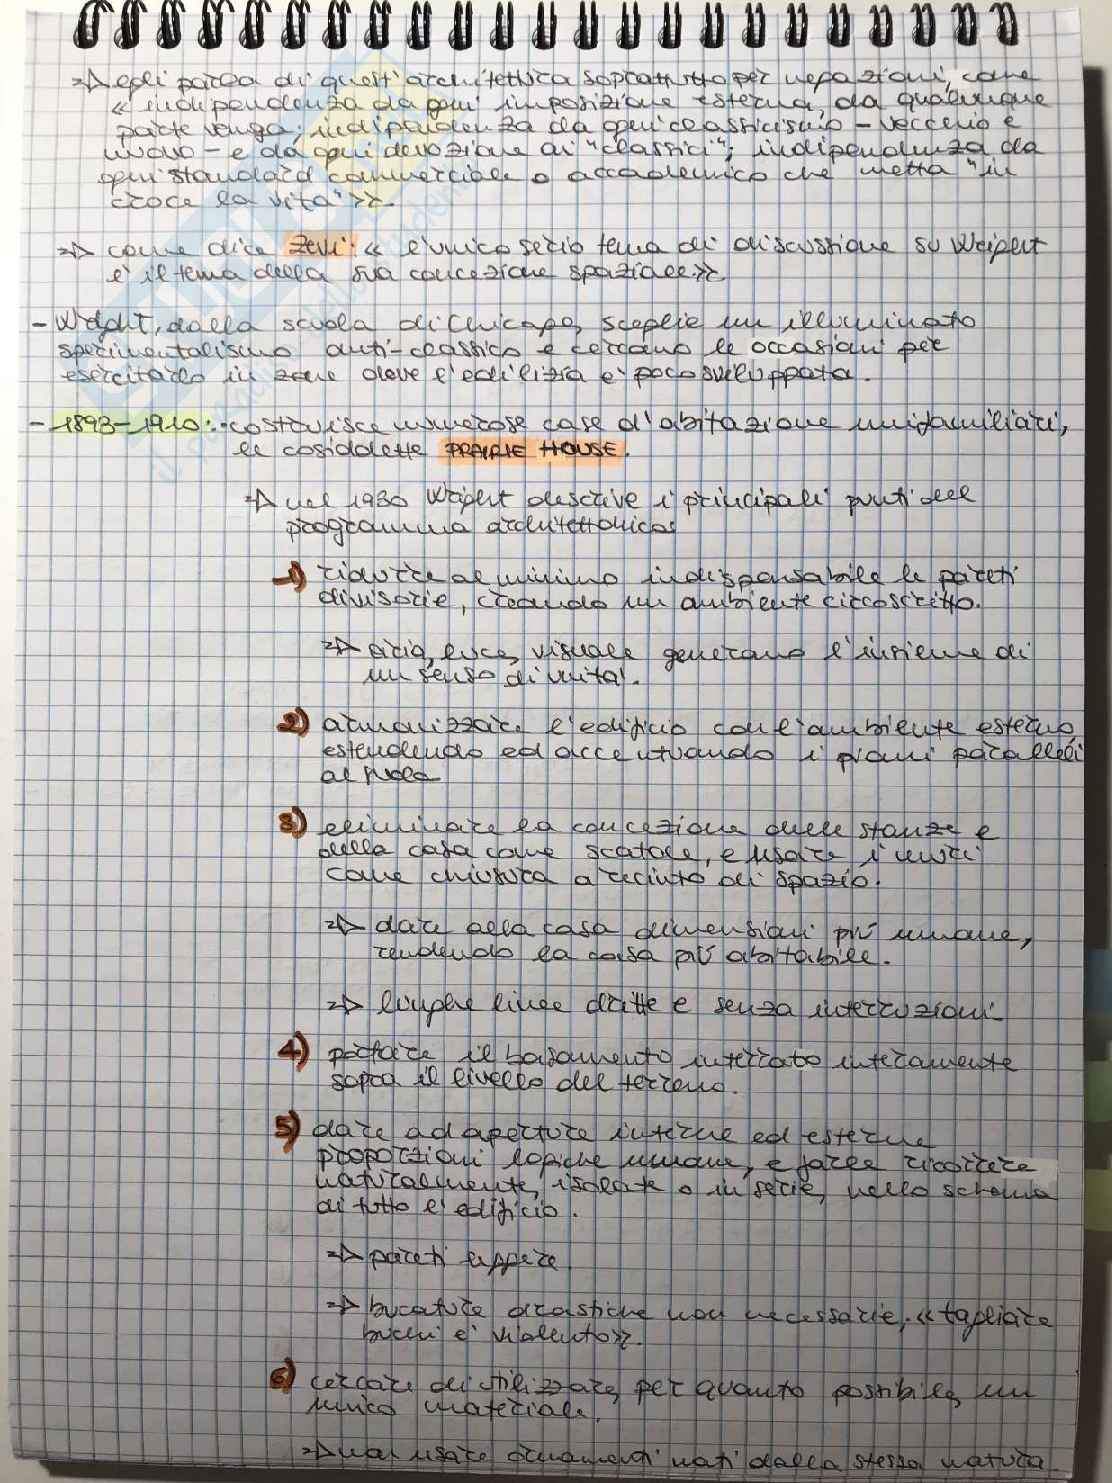 => egli parla di quest'architettura soprattutto per negazioni, come
« indipendenza da ogni imposizione esterna, da qualunque
parte venga; indipendenza da ogni classicismo - vecchio e
nuovo - e da ogni devozione ai "classici"; indipendenza da
ogni standard commerciale o accademico che metta "in
croce la vita"».
=> come dice Zevi: « l'unico serio tema di discussione su Wright
è il tema della sua concezione spaziale»
- Wright, dalla scuola di Chicago, sceglie un illuminato
sperimentalismo anti-classico e cercano le occasioni per
esercitarlo in zone dove l'edilizia è poco sviluppata.
- 1893-1910: costruisce numerose case d'abitazione unifamiliari,
le cosiddette PRAIRIE HOUSE.
=> nel 1930 Wright descrive i principali punti del
programma architettonico:
1) ridurre al minimo indispensabile le pareti
divisorie, creando un ambiente circoscritto.
=> aria, luce, visuale generano l'insieme di
un senso di unità.
2) armonizzare l'edificio con l'ambiente esterno,
estendendo ed accentuando i piani paralleli
al suolo
3) eliminare la concezione delle stanze e
della casa come scatole, e usare i muri
come chiusura a recinto di spazio.
=> dare alla casa dimensioni più umane,
rendendo la casa più abitabile.
=> lunghe linee dritte e senza interruzioni
4) portare il basamento interrato interamente
sopra il livello del terreno.
5) dare ad aperture interne ed esterne
proporzioni logiche umane, e farle ricorrere
naturalmente, isolate o in serie, nello schema
di tutto l'edificio.
=> pareti leggere
=> bucature drastiche non necessarie, « tagliare
buchi è violento».
6) cercare di utilizzare, per quanto possibile, un
unico materiale.
=> non usare ornamenti nati dalla stessa natura